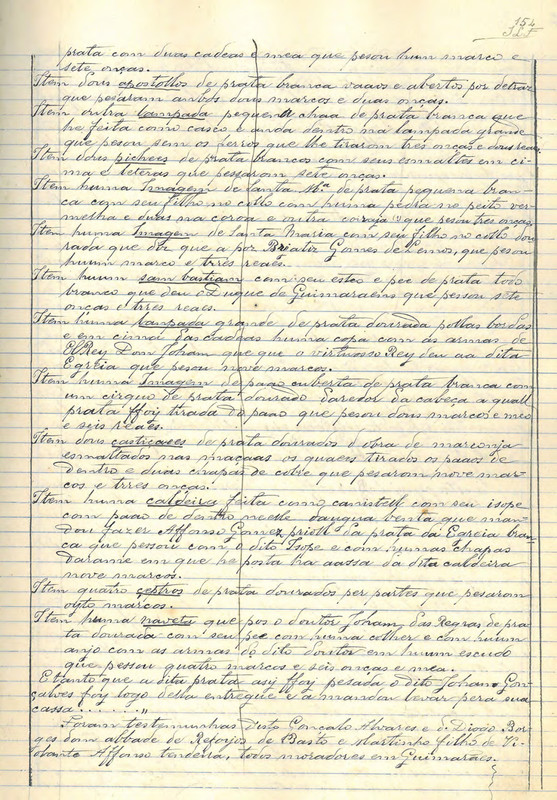 154
prata com duas cadeas e mea que pesou hum marco e
sete onças.
Item dous apostollos de prata branca vaaos e abertos por detraz
que pesaram ambos dous marcos e duas onças.
Item outra lampada pequena chaa de prata branca que
he feita como casco e anda dentro na lampada grande
que pesou sem os ferros que lhe tiraram tres onças e dous reaes
Item dous picheis de prata brancos com seus esmaltes em ci-
ma e leteras que pessaram sete onças.
Item humma Imagem de santa Mª de prata pequena bran-
ca com seu filho no collo com huma pedra no peito ver-
melha e duas na coroa e outra que pesou tres onças
Item huma Imagem de Santa Maria com seu filho no collo dou-
rada que diz que a por Briatiz Gomes de Lemos, que pesou
huum marco e trres reaes.
Item huum sam bastiam com seu esteo e pee de prata todo
branco que deu o Duque de Guimaraens que pesou sete
onças e tres reaes.
Item huma lampada grande, de prata dourada pollas bordas
e em cima das cadeas huma copa com as armas de
ElRey Dom Joham que que o virtuosso Rey deu aa dita
Egreia que pesou nove marcos.
Item humma Imagem de paao cuberta de prata branca com
um cirquo de prata dourado darredor da cabeça a quall
prata ffoy tirada do paao que pesou dous marcos e meo
e seis reaes.
Item dous castiçaees de prata dourados d obra de maçonja
esmaltados nas maçaas os quaees tirados os paaos de
dentro e duas chapas de cobre que pesaram nove mar-
cos e trres onças.
Item huma caldeira feita como canistell com seu isope
com paao de dentro meetle daugua benta que man-
dou fazer Affonso Gomez prioll da prata da Egreia bran-
ca que pessou com o dito Isope e com humas chapas
darame em que he posta ha aassa da dita caldeira
nove marcos.
Item quatro çeptros de prata dourados per partes que pesarom
oyto marcos.
Item huma naveta que pos o doutor Joham, das Regras de pra-
ta dourada com seu pee com huma colher e com huum
anjo com as armas do dito doutor em huum escudo
que pessou quatro marcos e seis onças e mea.
E tanto que a dita prata asy ffoy pesada o dito Joham Gon-
çalves foy logo della entregue e a mandou levar pera sua
cassa . . . . . . . "
Foram testemunhas disto Gonçalo Alvares e d. Diogo Bor-
ges dom abbade de Refoijos de Basto e Martinho filho de Vi-
olante Affonso tendeira, todos moradores em Guimarães.